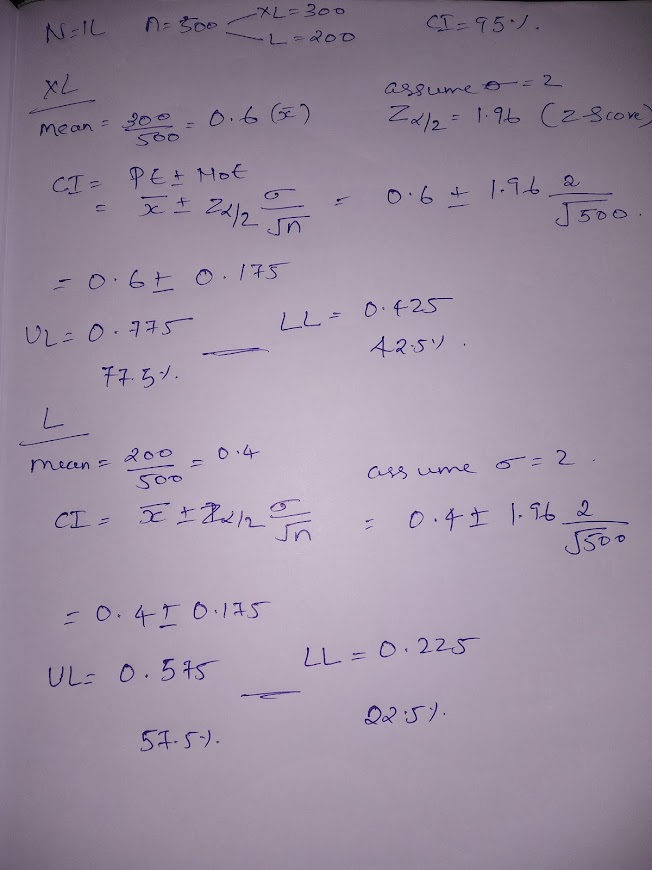 N=1L n=500 XL=300 CI=95%.
L=200
XL
assume σ=2
mean = 300/500 = 0.6 (x̄) Zα/2 = 1.96 (Z-Score)
CI = PE ± MOE
= x̄ ± Zα/2 σ/√n = 0.6 ± 1.96 2/√500.
= 0.6 ± 0.175
UL = 0.775 LL = 0.425
77.5%. 42.5%.
L
mean = 200/500 = 0.4 assume σ=2.
CI = x̄ ± Zα/2 σ/√n = 0.4 ± 1.96 2/√500
= 0.4 ± 0.175
UL = 0.575 LL = 0.225
57.5%. 22.5%.